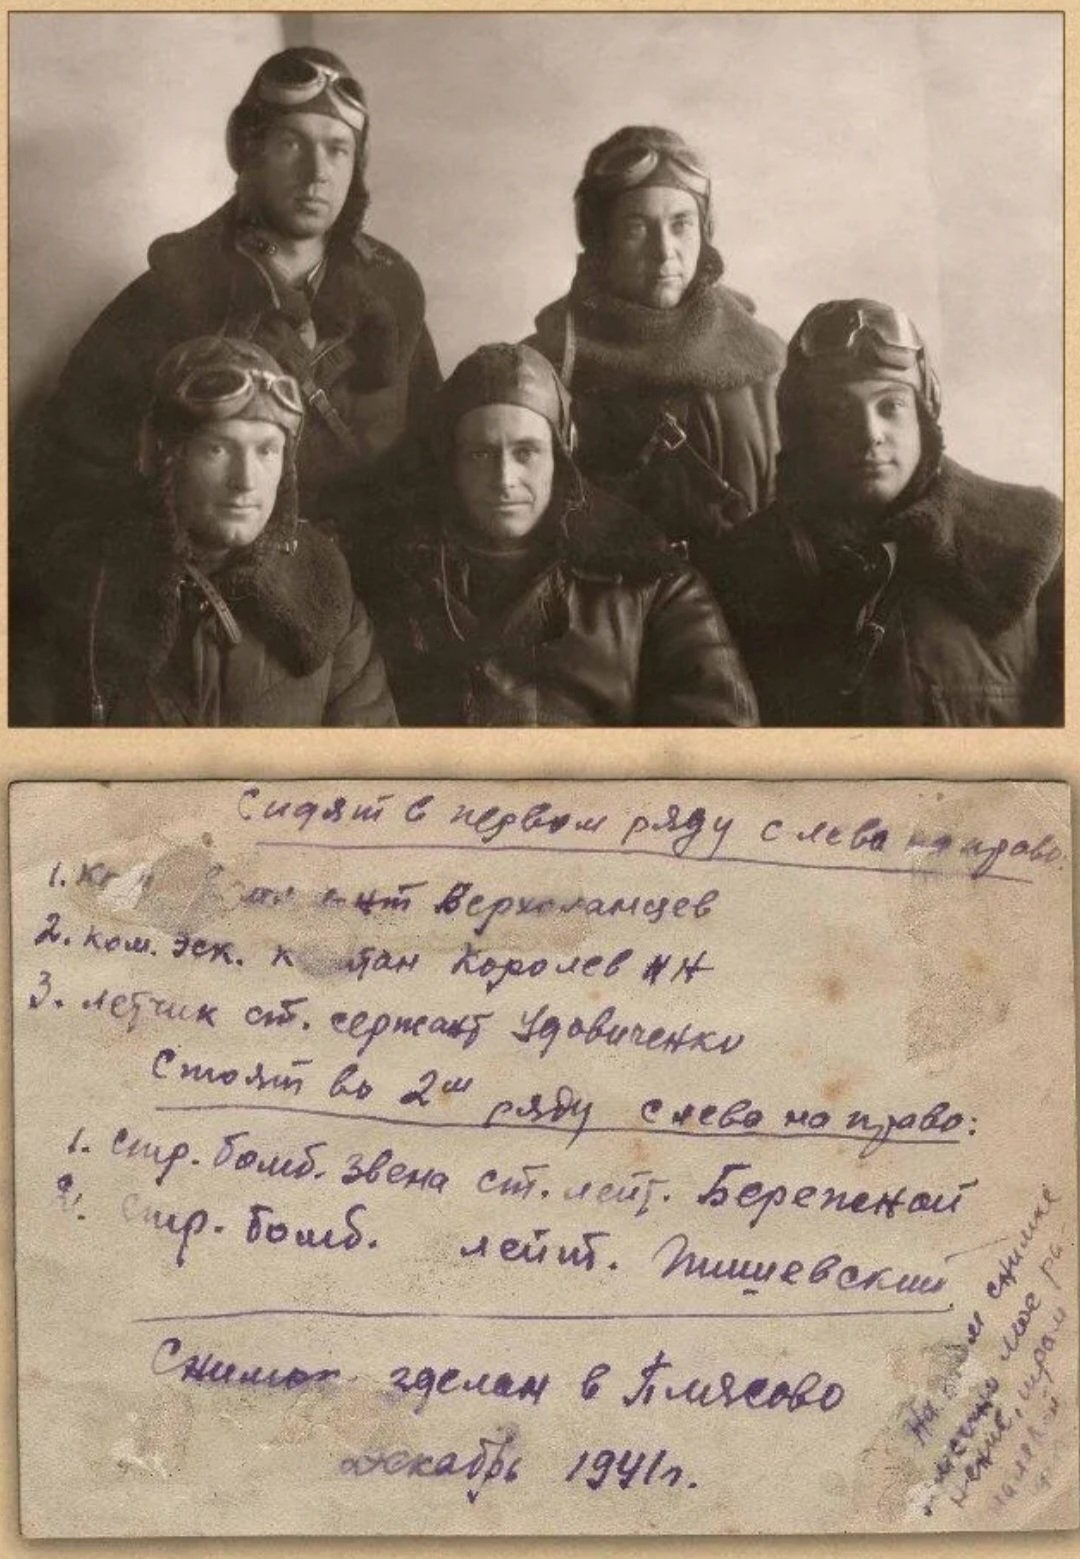 Сидят в первом ряду с лева на право:
1. лейтенант Верхоланцев
2. ком. эск. капитан Королев НН
3. летчик ст. сержант Удовиченко
Стоят во 2м ряду с лева на право:
1. Стр. бомб. звена ст. лейт. Бережной
2. Стр. бомб. лейт. Пишевский
Снимок зделан в Плясово
декабрь 1941 г.
На этом снимке
мое ра
нение, шрам